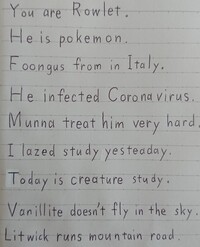 You are Rowlet.
He is pokemon.
Foongus from in Italy.
He infected Corona virus.
Munna treat him very hard.
I lazed study yesteaday.
Today is creature study.
Vanillite doesn't fly in the sky.
Litwick runs mountain road.